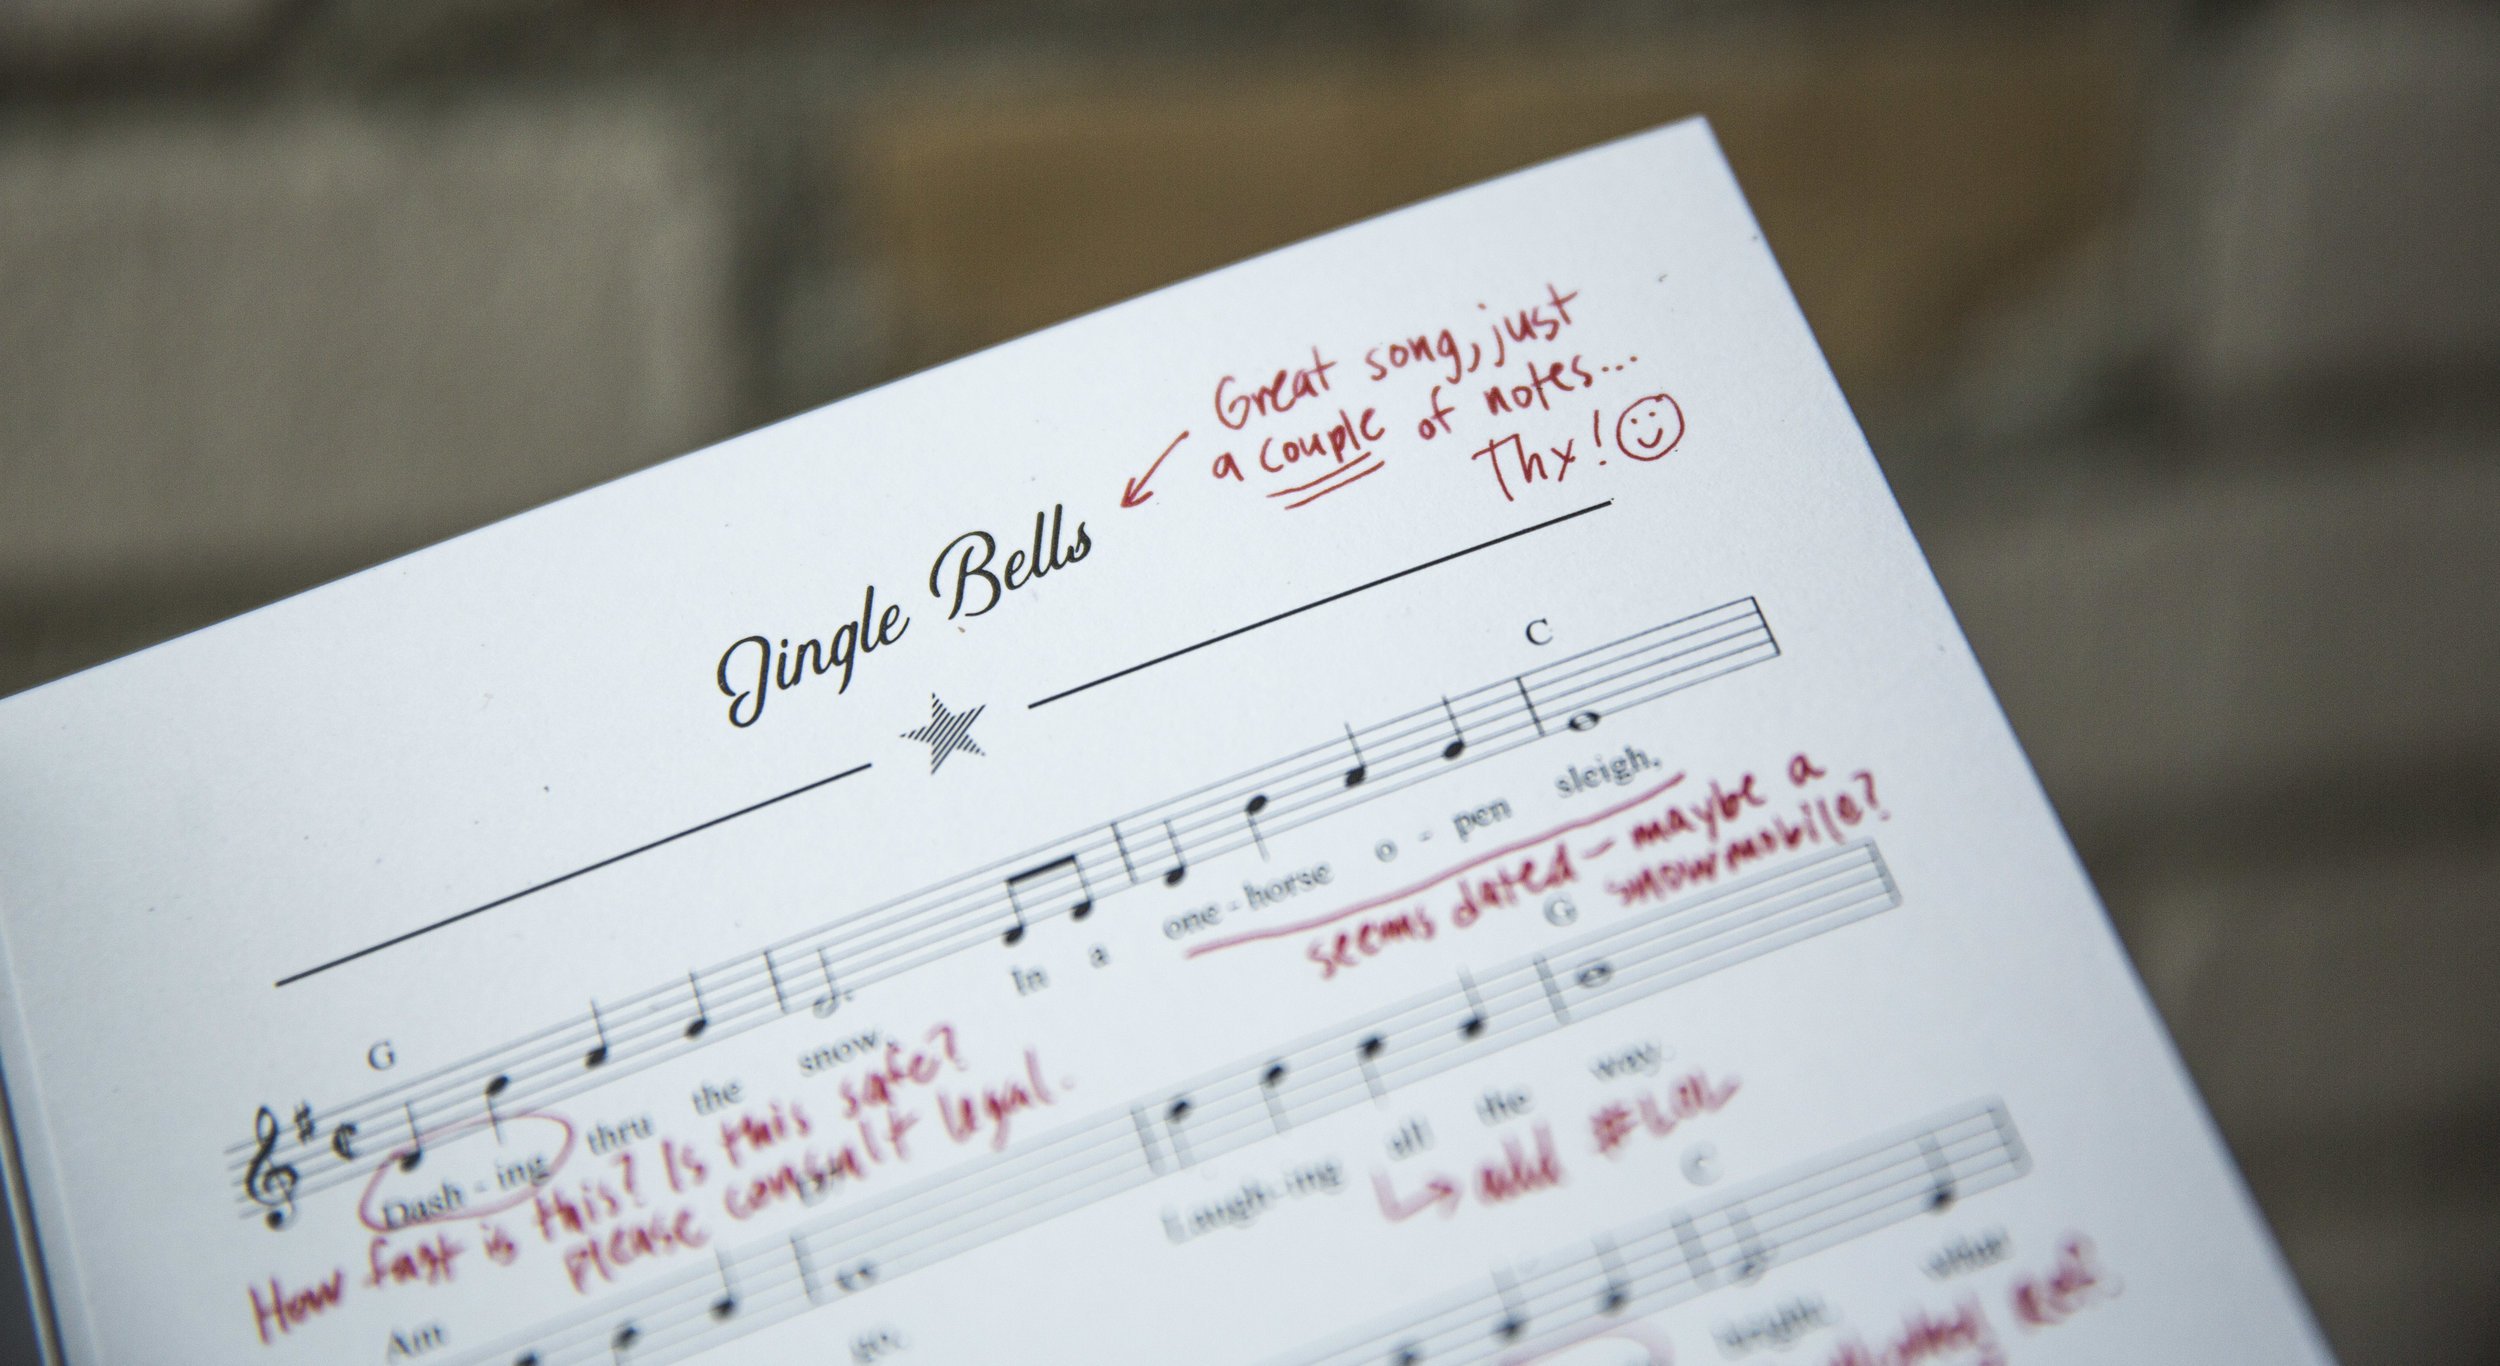 Great song, just
a couple of notes...
Thx!
Jingle Bells
G C
Dash - ing thru the snow, In a one - horse o - pen sleigh,
seems dated - maybe a
snowmobile?
How fast is this? Is this safe?
please consult legal.
G
Laugh - ing all the way
add #LOL
Am C
go